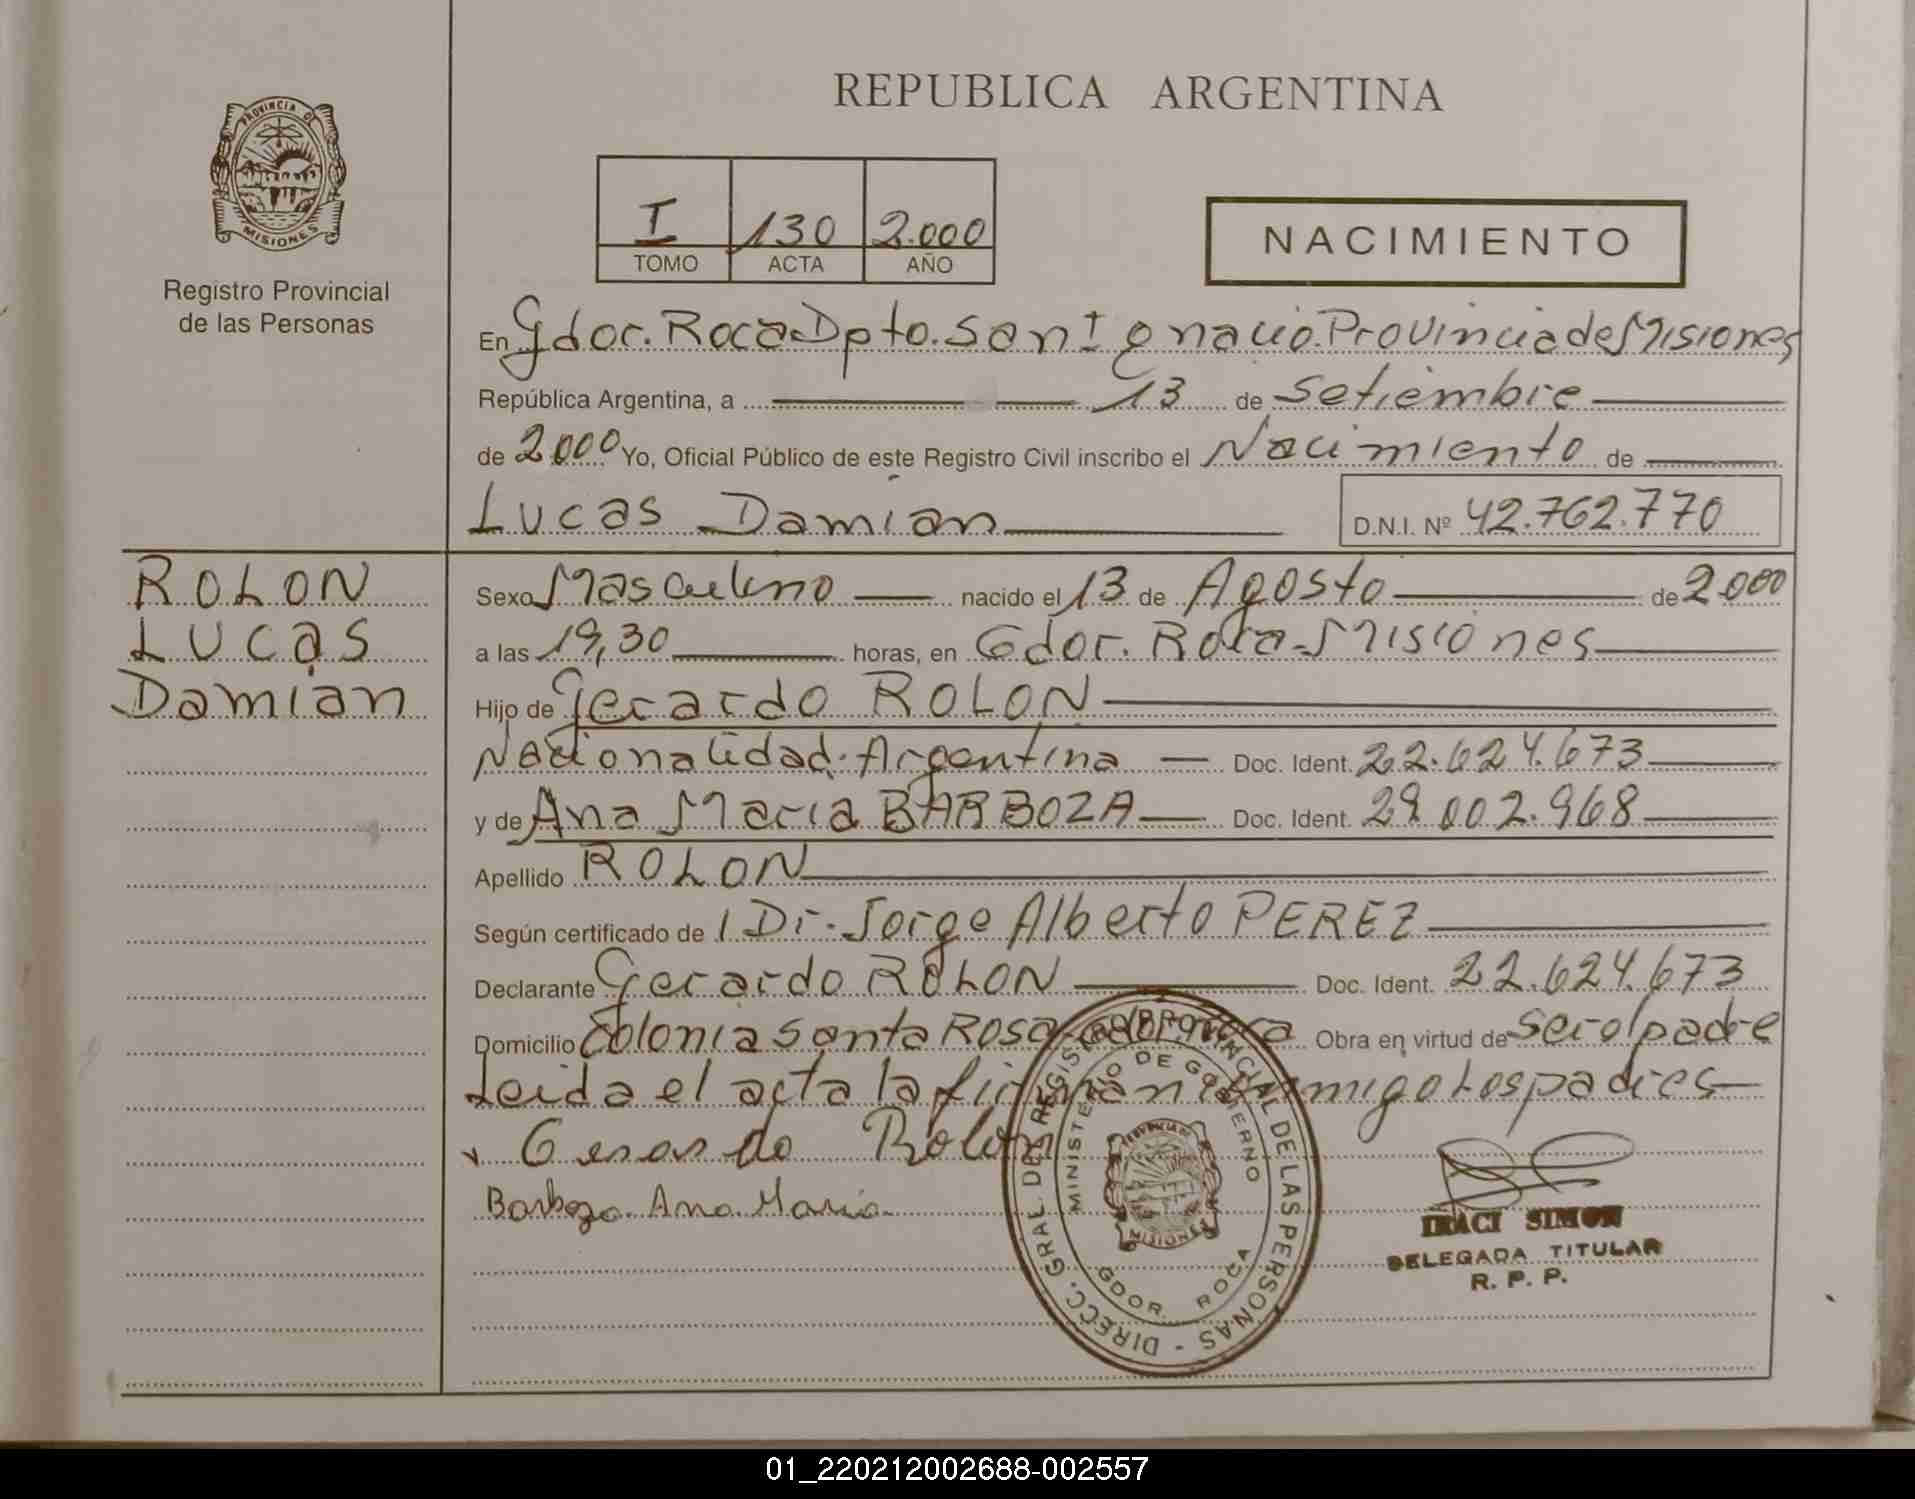 REPUBLICA ARGENTINA
PROVINCIA DE
MISIONES
Registro Provincial
de las Personas
I 130 2.000
TOMO ACTA AÑO
NACIMIENTO
En Gdor. Roca Dpto. San Ignacio. Provincia de Misiones
República Argentina, a 13 de Setiembre
de 2.000 Yo, Oficial Público de este Registro Civil inscribo el Nacimiento de
Lucas Damian
D.N.I. Nº 42.762.770
ROLON
Lucas
Damian
Sexo Masculino nacido el 13 de Agosto de 2.000
a las 19,30 horas, en Gdor. Roca-Misiones
Hijo de Gerardo ROLON
Nacionalidad. Argentina Doc. Ident. 22.624.673
y de Ana Maria BARBOZA Doc. Ident. 29.002.968
Apellido ROLON
Según certificado de l Dr. Jorge Alberto PEREZ
Declarante Gerardo ROLON Doc. Ident. 22.624.673
Domicilio Colonia Santa Rosa-Gdor. Roca Obra en virtud de ser el padre
Leida el acta la firman conmigo Los padres
Gerardo Rolon
Barboza Ana Maria
DIRECC. GRAL DEL REGISTRO PROVINCIAL DE LAS PERSONAS -
MINISTERIO DE GOBIERNO
PROVINCIA DE
MISIONES
GDOR. ROCA
IRACI SIMON
DELEGADA TITULAR
R. P. P.
01_220212002688-002557